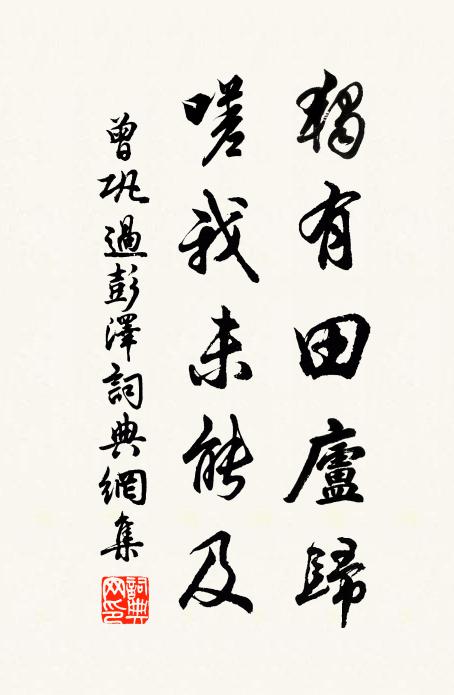 獨有田廬歸
嗟我未能及
曾鞏過彭澤詞典網集
詞典網印